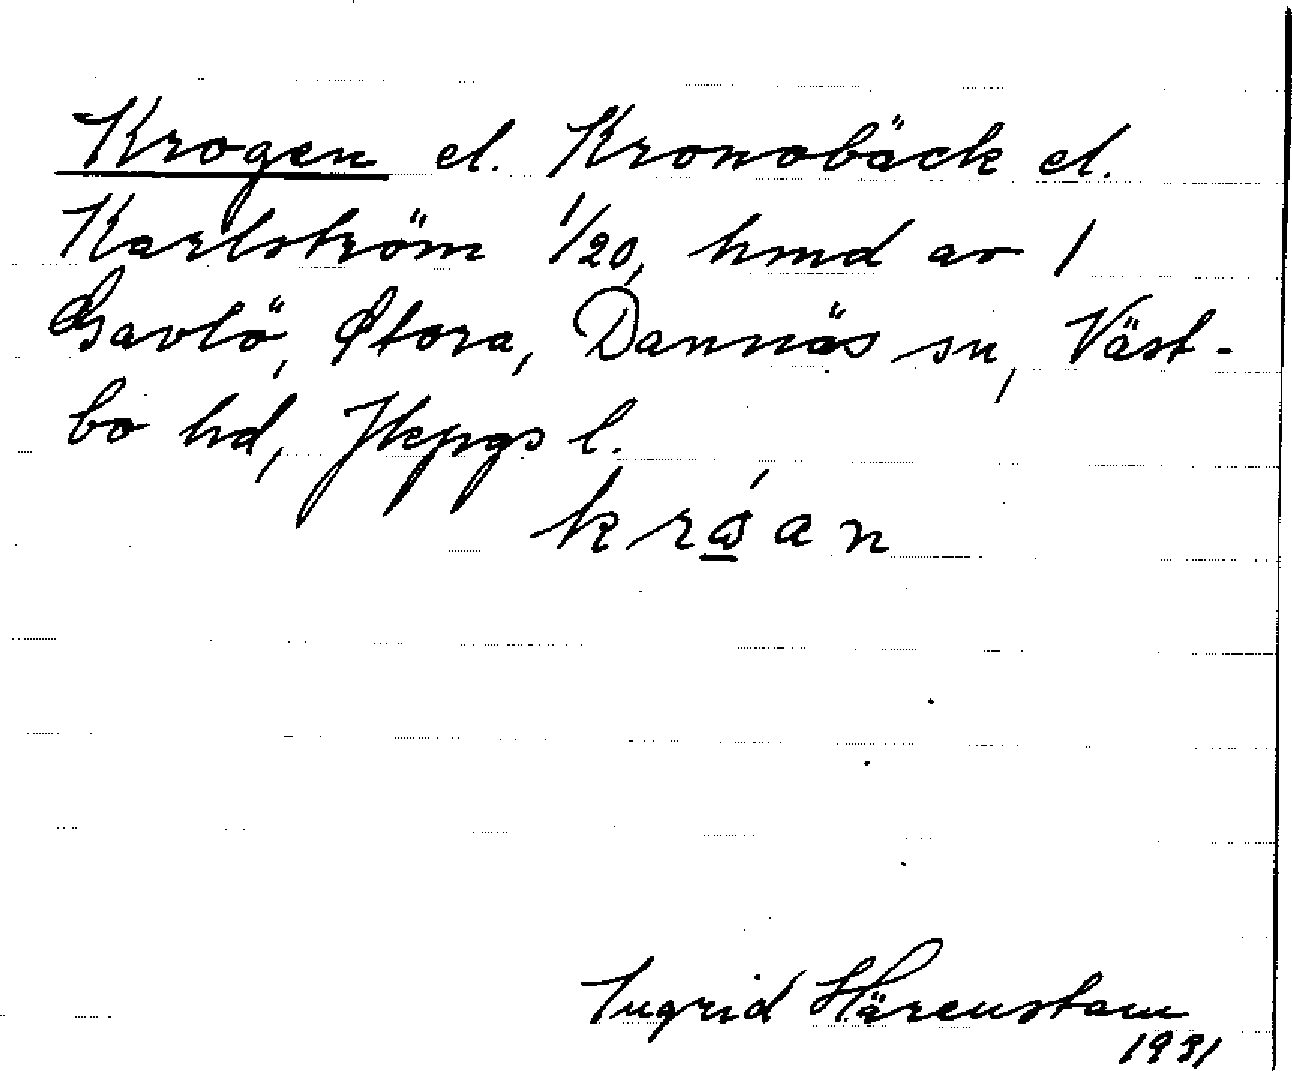 Krogen el. Kronobäck el.
Karlström 1/20, hmd av 1
Gavlö, Stora, Dannäs sn, Väst-
bo hd, Jkpgs l.
kran
Ingrid Härenstam
1931